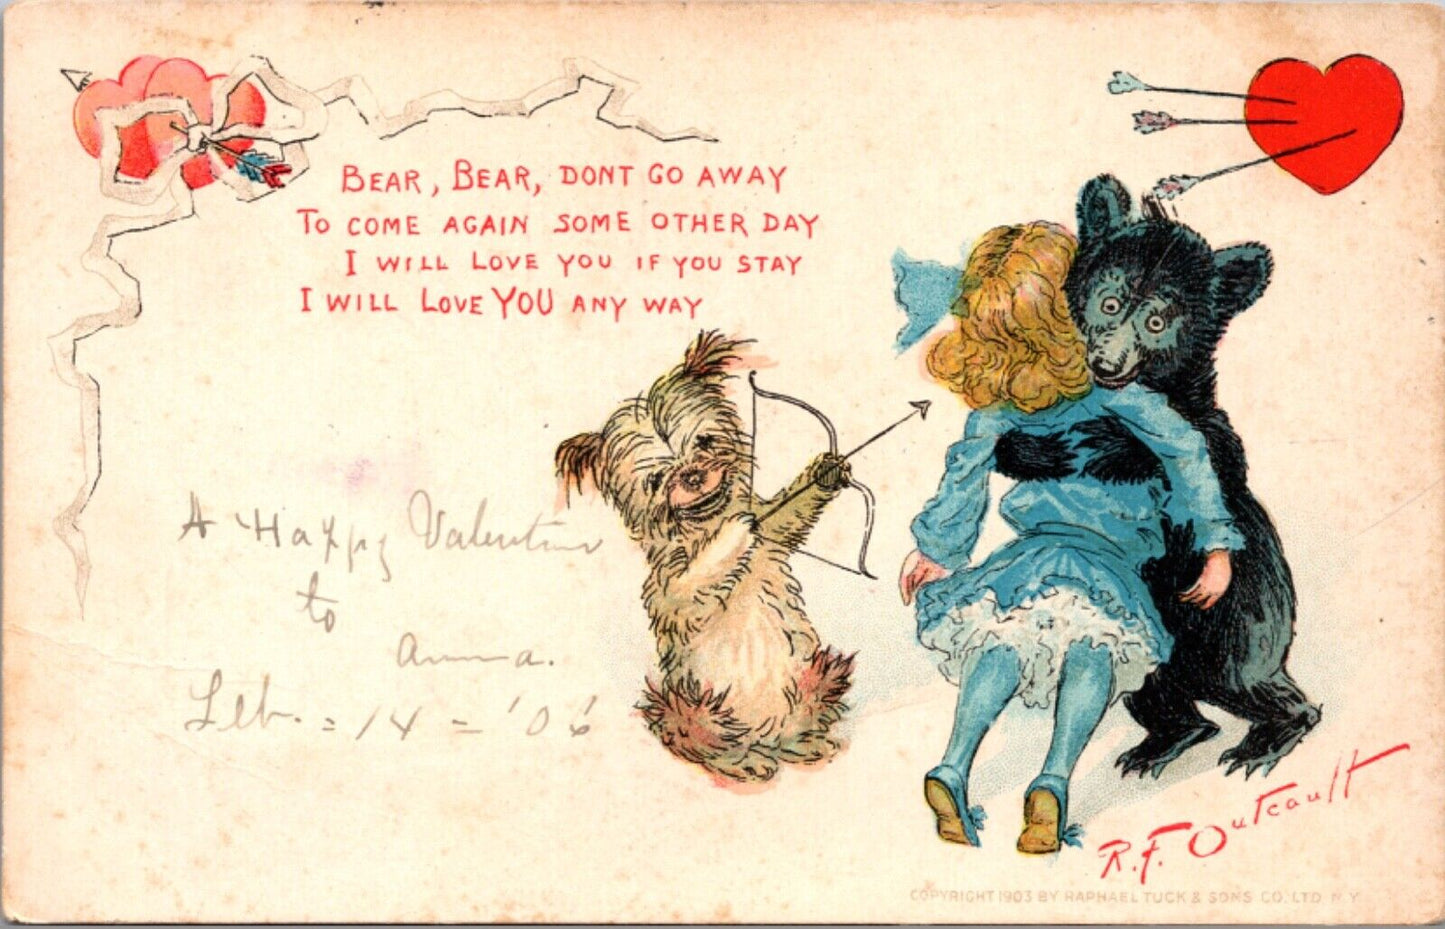 BEAR, BEAR, DONT GO AWAY
TO COME AGAIN SOME OTHER DAY
I WILL LOVE YOU IF YOU STAY
I WILL LOVE YOU ANY WAY
A Happy Valentine
to
Anna.
Feb. = 14 = '06
R.F. Outcault
COPYRIGHT 1903 BY RAPHAEL TUCK & SONS CO. LTD N.Y.